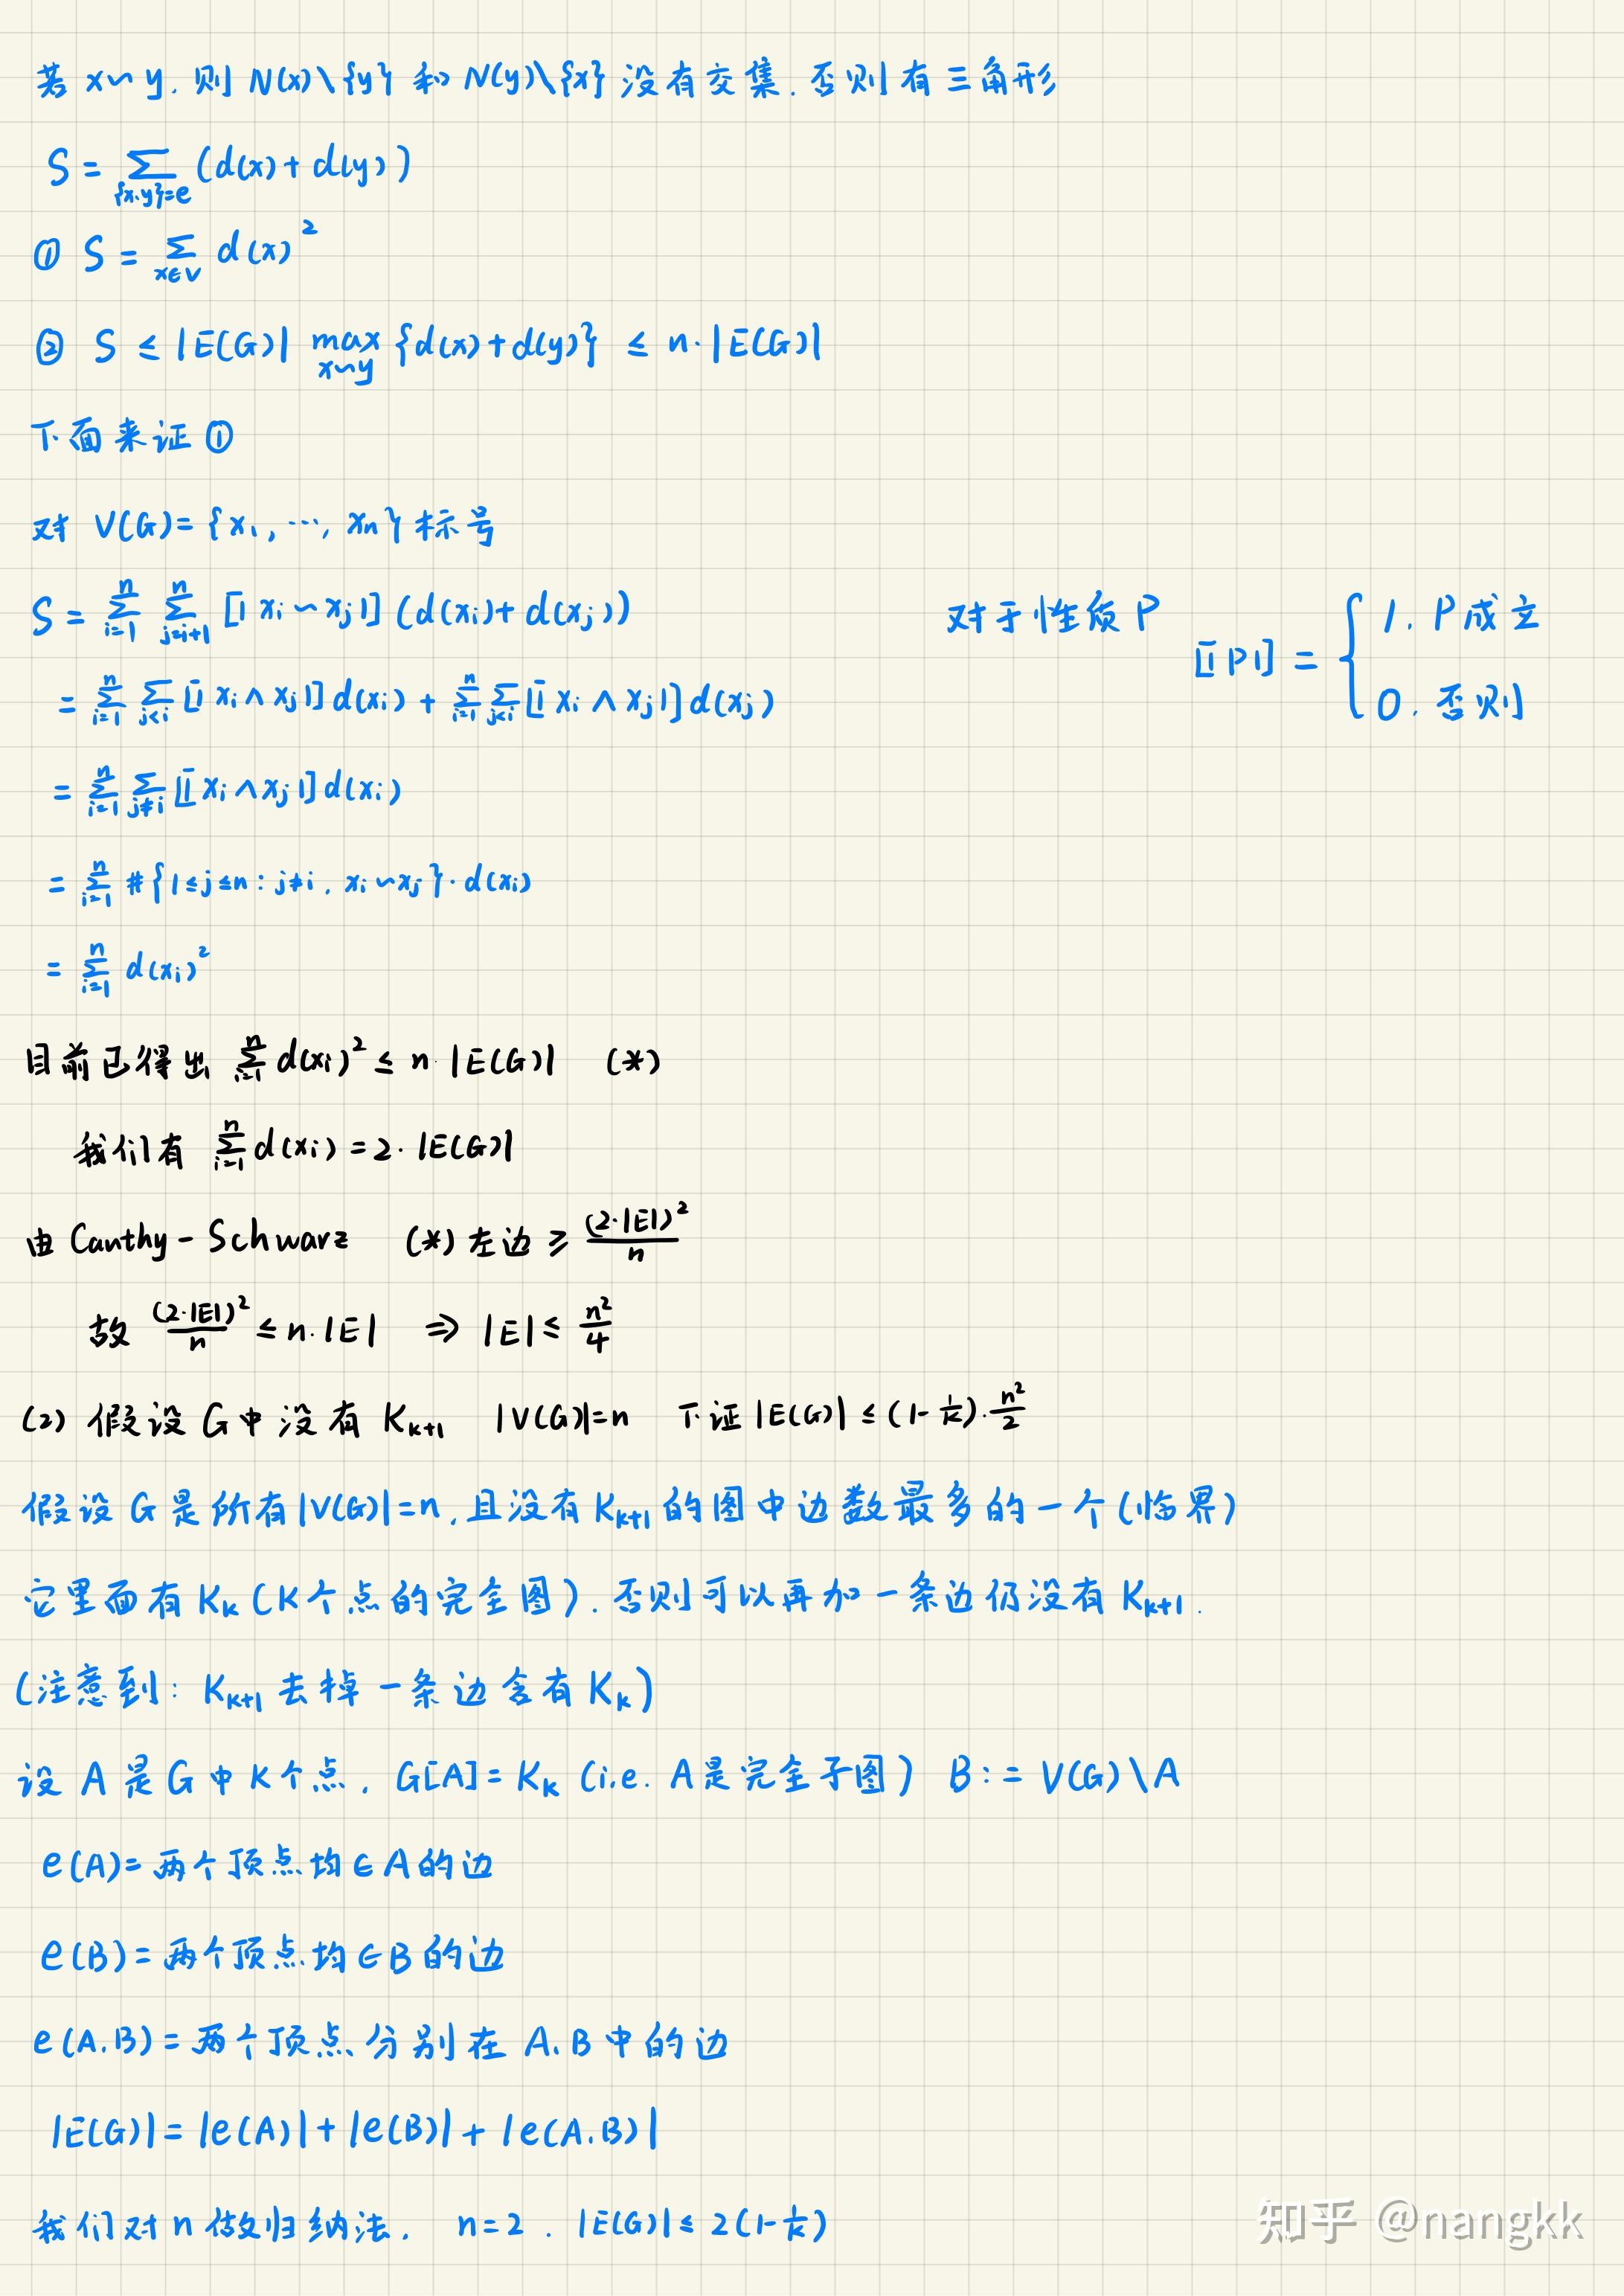 若 x~y. 则 N(x)\{y} 和 N(y)\{x} 没有交集. 否则有三角形
S = ∑_{{x.y}=e} (d(x)+d(y))
① S = ∑_{x∈V} d(x)²
② S ≤ |E(G)| max_{x~y} {d(x)+d(y)} ≤ n·|E(G)|
下面来证①
对 V(G)={x₁, ⋯, xₙ} 标号
S = ∑_{i=1}^{n} ∑_{j=i+1}^{n} [| x_i ~ x_j |] (d(x_i)+d(x_j))
对于性质 P [|P|] = { 1. P成立
0. 否则
= ∑_{i=1}^{n} ∑_{j<i} [| x_i ∧ x_j |] d(x_i) + ∑_{i=1}^{n} ∑_{j<i} [| x_i ∧ x_j |] d(x_j)
= ∑_{i=1}^{n} ∑_{j≠i} [| x_i ∧ x_j |] d(x_i)
= ∑_{i=1}^{n} #{1≤j≤n : j≠i, x_i ~ x_j}·d(x_i)
= ∑_{i=1}^{n} d(x_i)²
目前已得出 ∑_{i=1}^{n} d(x_i)² ≤ n·|E(G)| (*)
我们有 ∑_{i=1}^{n} d(x_i) = 2·|E(G)|
由 Canthy-Schwarz (*)左边 ≥ (2·|E|)²/n
故 (2·|E|)²/n ≤ n·|E| ⇒ |E| ≤ n²/4
(2) 假设 G中没有 K_{k+1} |V(G)|=n 下证 |E(G)| ≤ (1-1/k)·n²/2
假设 G是所有|V(G)|=n, 且没有 K_{k+1} 的图中边数最多的一个(临界)
它里面有 K_k (K个点的完全图). 否则可以再加一条边仍没有 K_{k+1}.
(注意到: K_{k+1} 去掉一条边含有 K_k)
设 A 是 G 中 K个点, G[A]=K_k (i.e. A是完全子图) B:= V(G)\A
e(A)= 两个顶点均∈A的边
e(B)= 两个顶点均∈B的边
e(A.B)= 两个顶点分别在 A.B 中的边
|E(G)|= |e(A)|+ |e(B)|+ |e(A.B)|
我们对 n 做归纳法. n=2. |E(G)| ≤ 2(1-1/k)
知乎 @nangkk